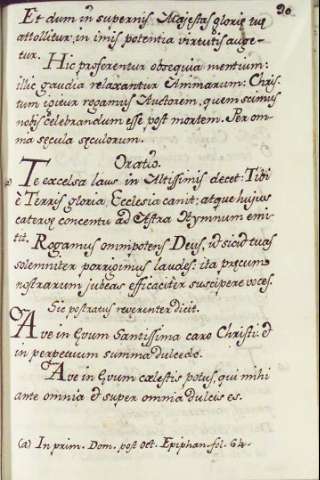 30.
Et dum in supernis Majestas glorię tuę
attollitur, in imis potentia virtutis auge-
tur. Hic proferentur obsequia mentium:
illic gaudia relaxantur Animarum: Chris-
tum igitur rogamus Auctorem, quem scimus
nobis celebrandum esse post mortem. Per om-
nia sęcula sęculorum.
Oratio.
(a) Te excelsa laus in Altissimis decet: Tibi
è Terris gloria Ecclesia canit: atque hujus
catervę concentu ad Astra Hymnum emi-
tit. Rogamus omnipotens Deus, ut sicut tuas
solemniter porrigimus laudes: ita pręcum
nostrarum jubeas efficaciter suscipere voces.
Sic postratus reverenter dicit.
Ave in Ęvum Santissima caro Christi: &
in perpetuum summa dulcedo.
Ave in Ęvum cælestis potus, qui mihi
ante omnia & super omnia dulcis es.
(a) In prim. Dom. post oct. Epiphan. fol. 64.